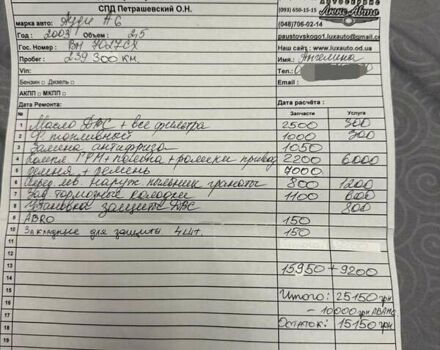 СПД Петрашевский О.Н.
Автосервис
Люкс Авто
(093) 650-15-15
(048)706-02-14
марка авто: Ауди А6
Год: 2003 Объем 2,5
paustovskogo1.luxauto@gmail.co
Гос. Номер: ВН 7027СХ
Наш сайт: www.luxauto.od.ua
Пробег: 239 300 км
Имя: Ангелина
Vin:
Тел.:
Бензин □ Дизель □
Email:
АКПП □ МКПП □
Дата Ремонта:
Дата расчёта:
Запчасти Услуга
1 Масло ДВС + все фильтра 2500 300
2 Ф. топливный 1000 300
3 Замена антифриза 1050
4 Компл ГРМ + помпа + ролики привод 2200 6000
5 ремня + ремень 7000
6 Перед лев наруж пыльник гранаты 800 1200
7 Зад тормозные колодки 1100 600
8 Установка защиты ДВС 800
9 ABRO 150
10 Закладные для защиты 4 шт. 150
11
12
13 15950 + 9200
14
15 Итого: 25150 грн
16 - 10000 грн АВАНС
17 Остаток: 15150 грн
18
19